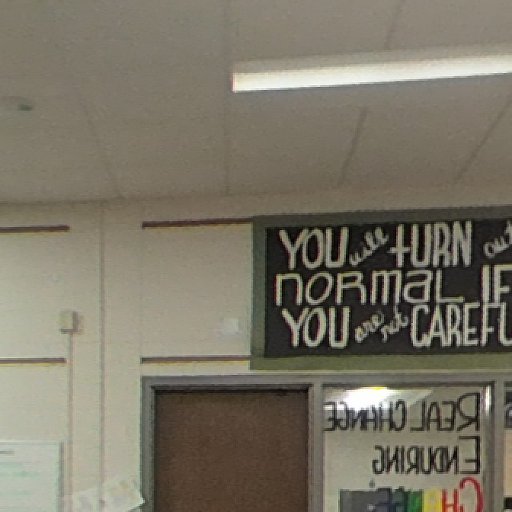 YOU will TURN out
NORMAL IF
YOU are not CAREFU
REAL CHANGE
ENDURING